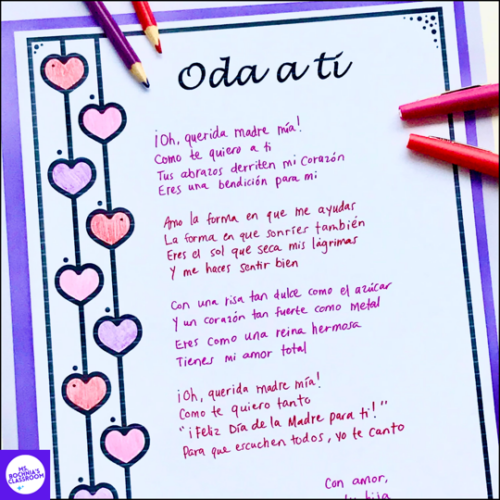 Oda a ti
¡Oh, querida madre mía!
Como te quiero a ti
Tus abrazos derriten mi corazón
Eres una bendición para mi
Amo la forma en que me ayudas
La forma en que sonríes también
Eres el sol que seca mis lágrimas
Y me haces sentir bien
Con una risa tan dulce como el azúcar
Y un corazón tan fuerte como metal
Eres como una reina hermosa
Tienes mi amor total
¡Oh, querida madre mía!
Como te quiero tanto
"¡Feliz Día de la Madre para ti!"
Para que escuchen todos, yo te canto
Con amor,
hija
MS.
ROCHNIA'S
CLASSROOM